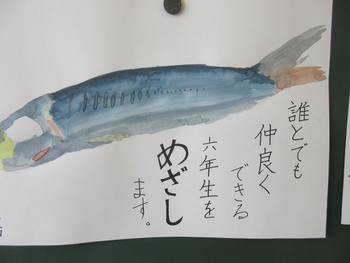 誰とでも
仲良く
できる
六年生を
めざし
ます。